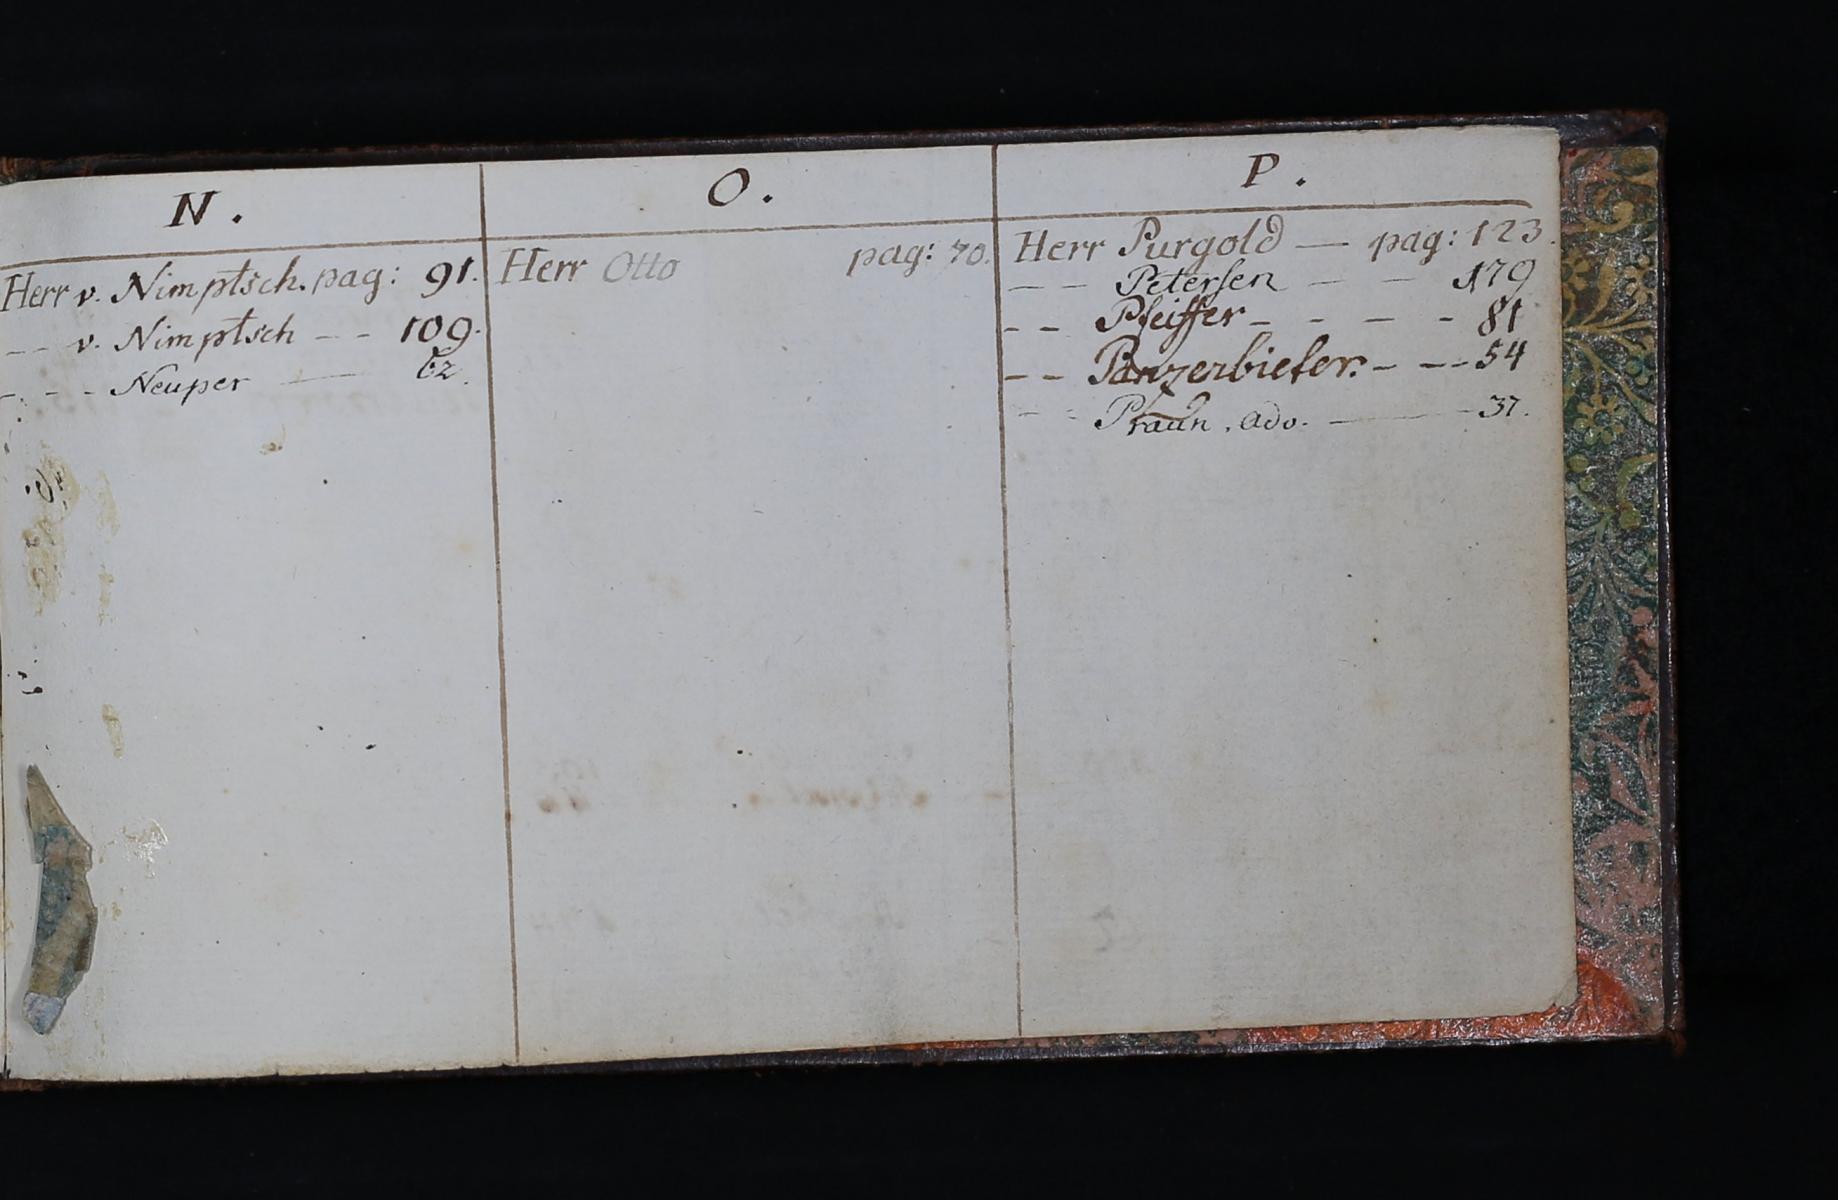 N.
Herr v. Nimptsch. pag: 91.
-- v. Nimptsch -- 109.
--- Neuper — 62.
O.
Herr Otto pag: 70.
P.
Herr Purgold — pag: 123.
-- Petersen — — 179
-- Pfeiffer - - - - 81
-- Panzerbieter. - -- 54
-- Praun, adv. — 37.